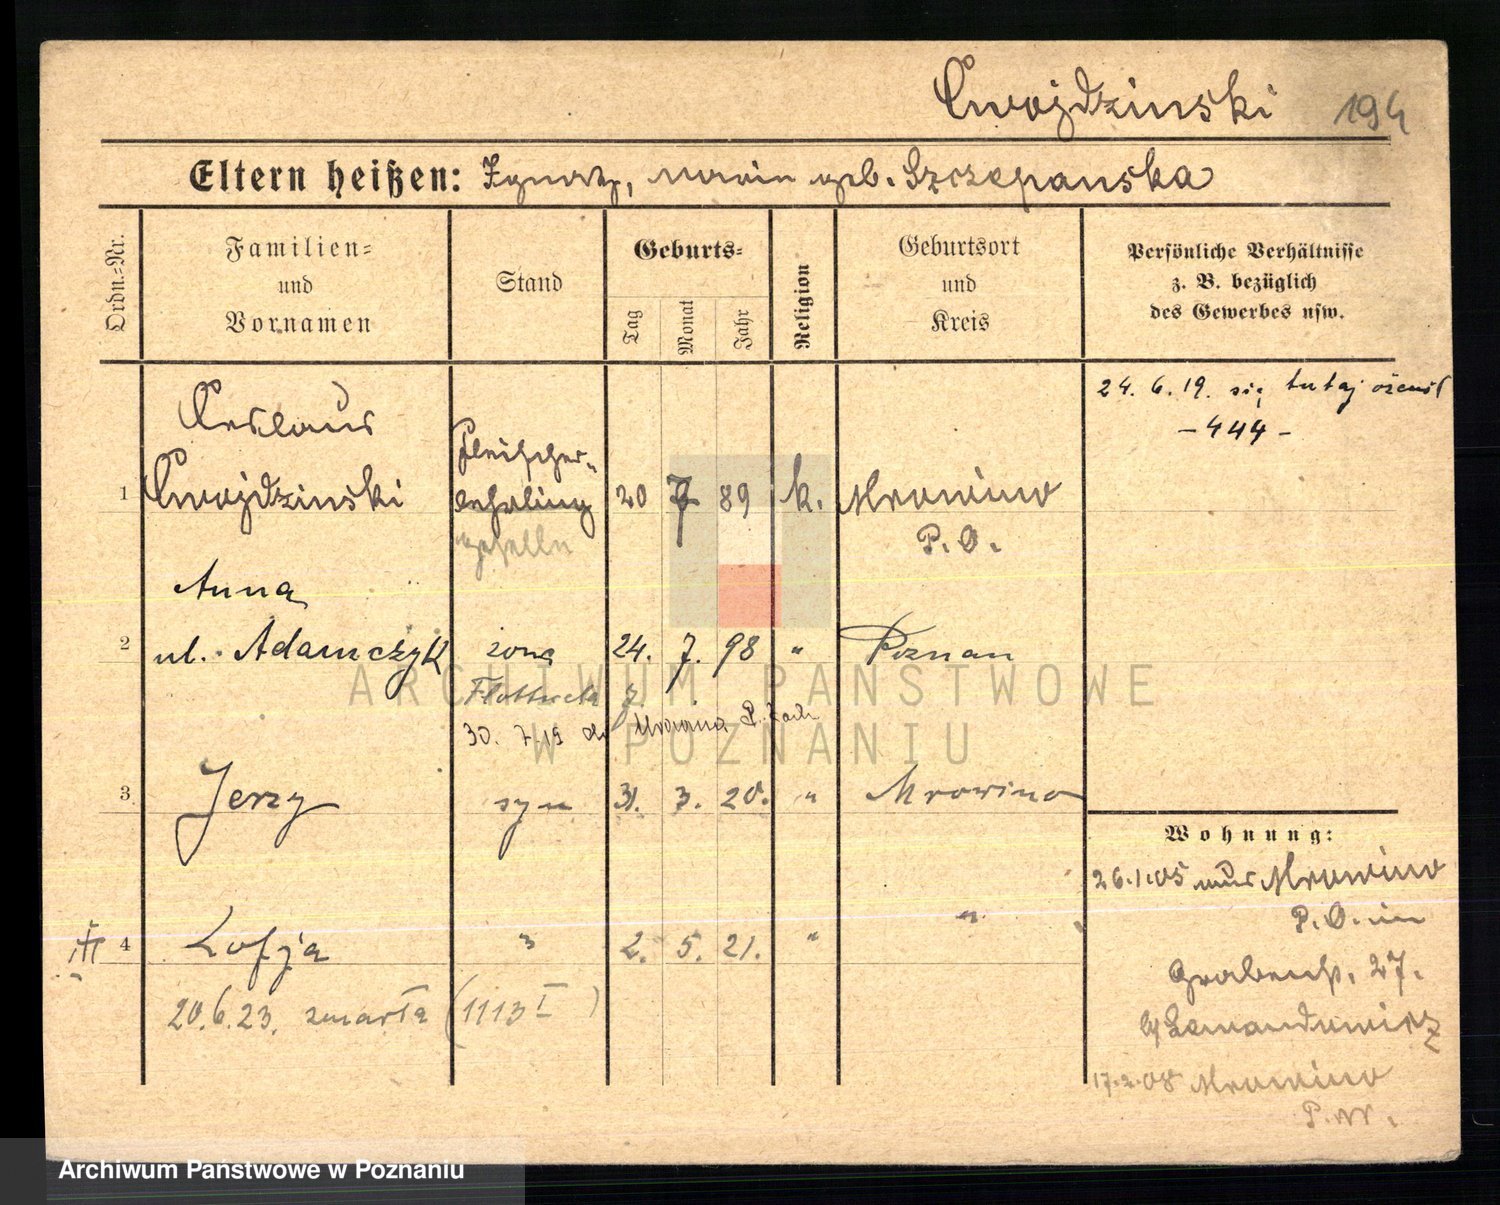 Cwojdzinski 194
Eltern heißen: Ignatz, Marie geb. Szczepanska
Ordn.=Nr.
Familien=
und
Vornamen
Stand
Geburts=
Tag
Monat
Jahr
Religion
Geburtsort
und
Kreis
Persönliche Verhältnisse
z. B. bezüglich
des Gewerbes usw.
24. 6. 19. się tutaj ożenił
- 444 -
Ceslaus
1 Cwojdzinski Fleischer-
lehrling 20 7 89 k. Mrowino
geselle P. O.
Anna
2 ul. Adamczyk żona 24. 7. 98 " Poznan
30. 7. 19
3 Jerzy syn 31. 3. 20. " Mrowino
4 Zofja " 2. 5. 21. " "
20. 6. 23. zmarła (1113 I)
Wohnung:
26.1.05 aus Mrowino
P. O. in
Grabenstr. 27.
b/
17.2.08 Mrowino
P. W.
ARCHIWUM PAŃSTWOWE
W POZNANIU
Archiwum Państwowe w Poznaniu